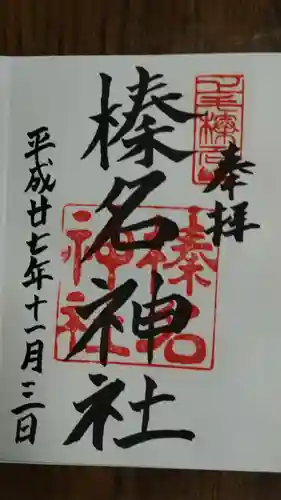 奉拝
榛名神社
平成廿七年十一月三日
榛名
神社